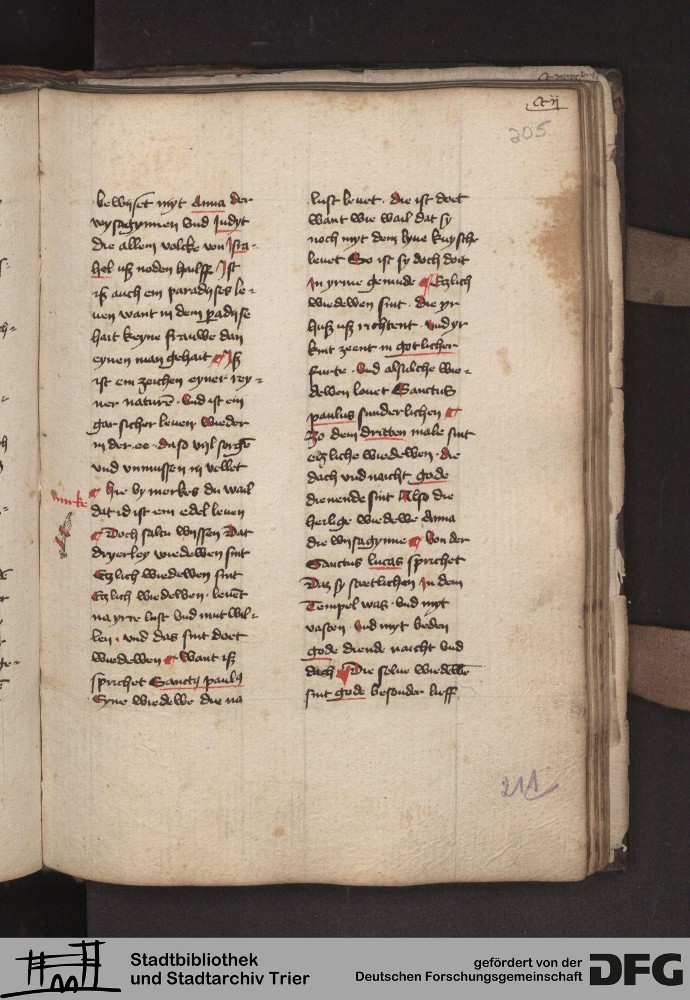 205
bewijset myt Anna der
wysagynnen vnd Judyt
die allem volcke von Isra-
hel uß noden haulff Ist
iß auch ein paradijses le-
uen want in dem padijse
hait keyne frauwe dan
eynen man gehait Iß
ist ein zeichen eyner rey-
ner naturē vnd ist ein
gar sicher leuen wieder
in der ee daso vijl sorgē
vnd vnmussen in vellet
hie by merkes du wail
dat id ist ein edel leuen
Doch saltu wyssen Dat
dryerley wiedewen sint
Etzlich wiedewen sint
Etzlich wiedewen leuēt
na yre lust vnd mutwil-
len vnd das sint doet
wiedewen want iß
sprichet Sanctus paulus
Eyne wiedewe die na
lust leuet die ist doet
want wie wail dat sy
noch myt dem lyue kuysche
leuet So ist sy doch doit
in yrme gemude Etzlich
wiedewen sint die yr
huß uß richtent vnd yr
kint zeent in gotlicher
furte vnd alsulche wie-
dewen louet Sanctus
paulus sunderlichen
Zo dem dritten male sint
etzliche wiedewen die
dach vnd naicht gode
dienende sint Also die
heilige wiedewe Anna
die wysagynne von der
Sanctus lucas sprichet
Daz sy stetlichen in dem
Tempel was vnd myt
vasten vnd myt beden
gode diende naicht vnd
dach Die selue wiedewē
sint gode besonder lieff
211
Stadtbibliothek
und Stadtarchiv Trier
gefördert von der
Deutschen Forschungsgemeinschaft
DFG